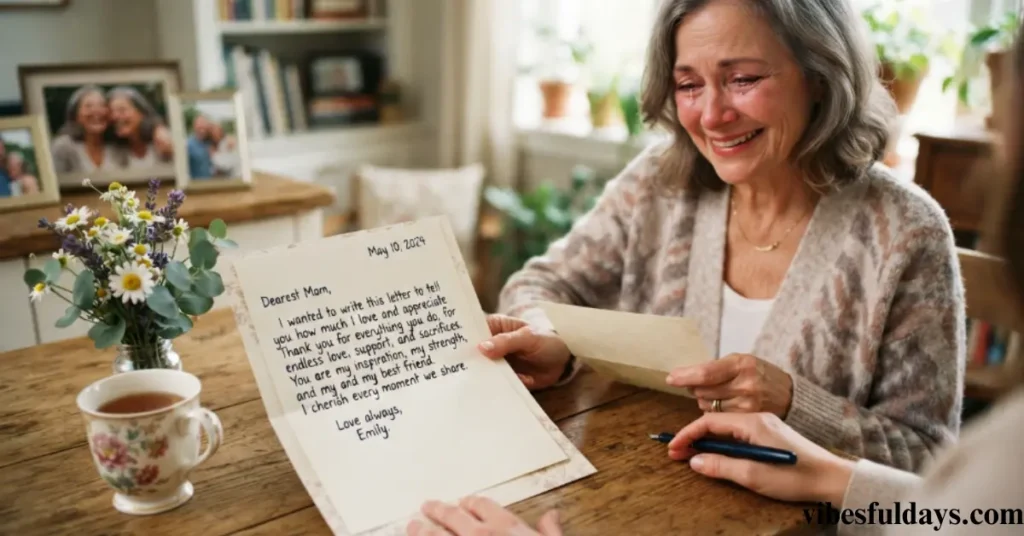 May 10, 2024
Dearest Mam,
I wanted to write this letter to tell
you how much I love and appreciate
Thank you for everything you do, for
endless love, support, and sacrifices.
You are my inspiration, my strength,
and my and my best friend.
I cherish every moment we share.
Love always,
Emily.
vibesfuldays.com